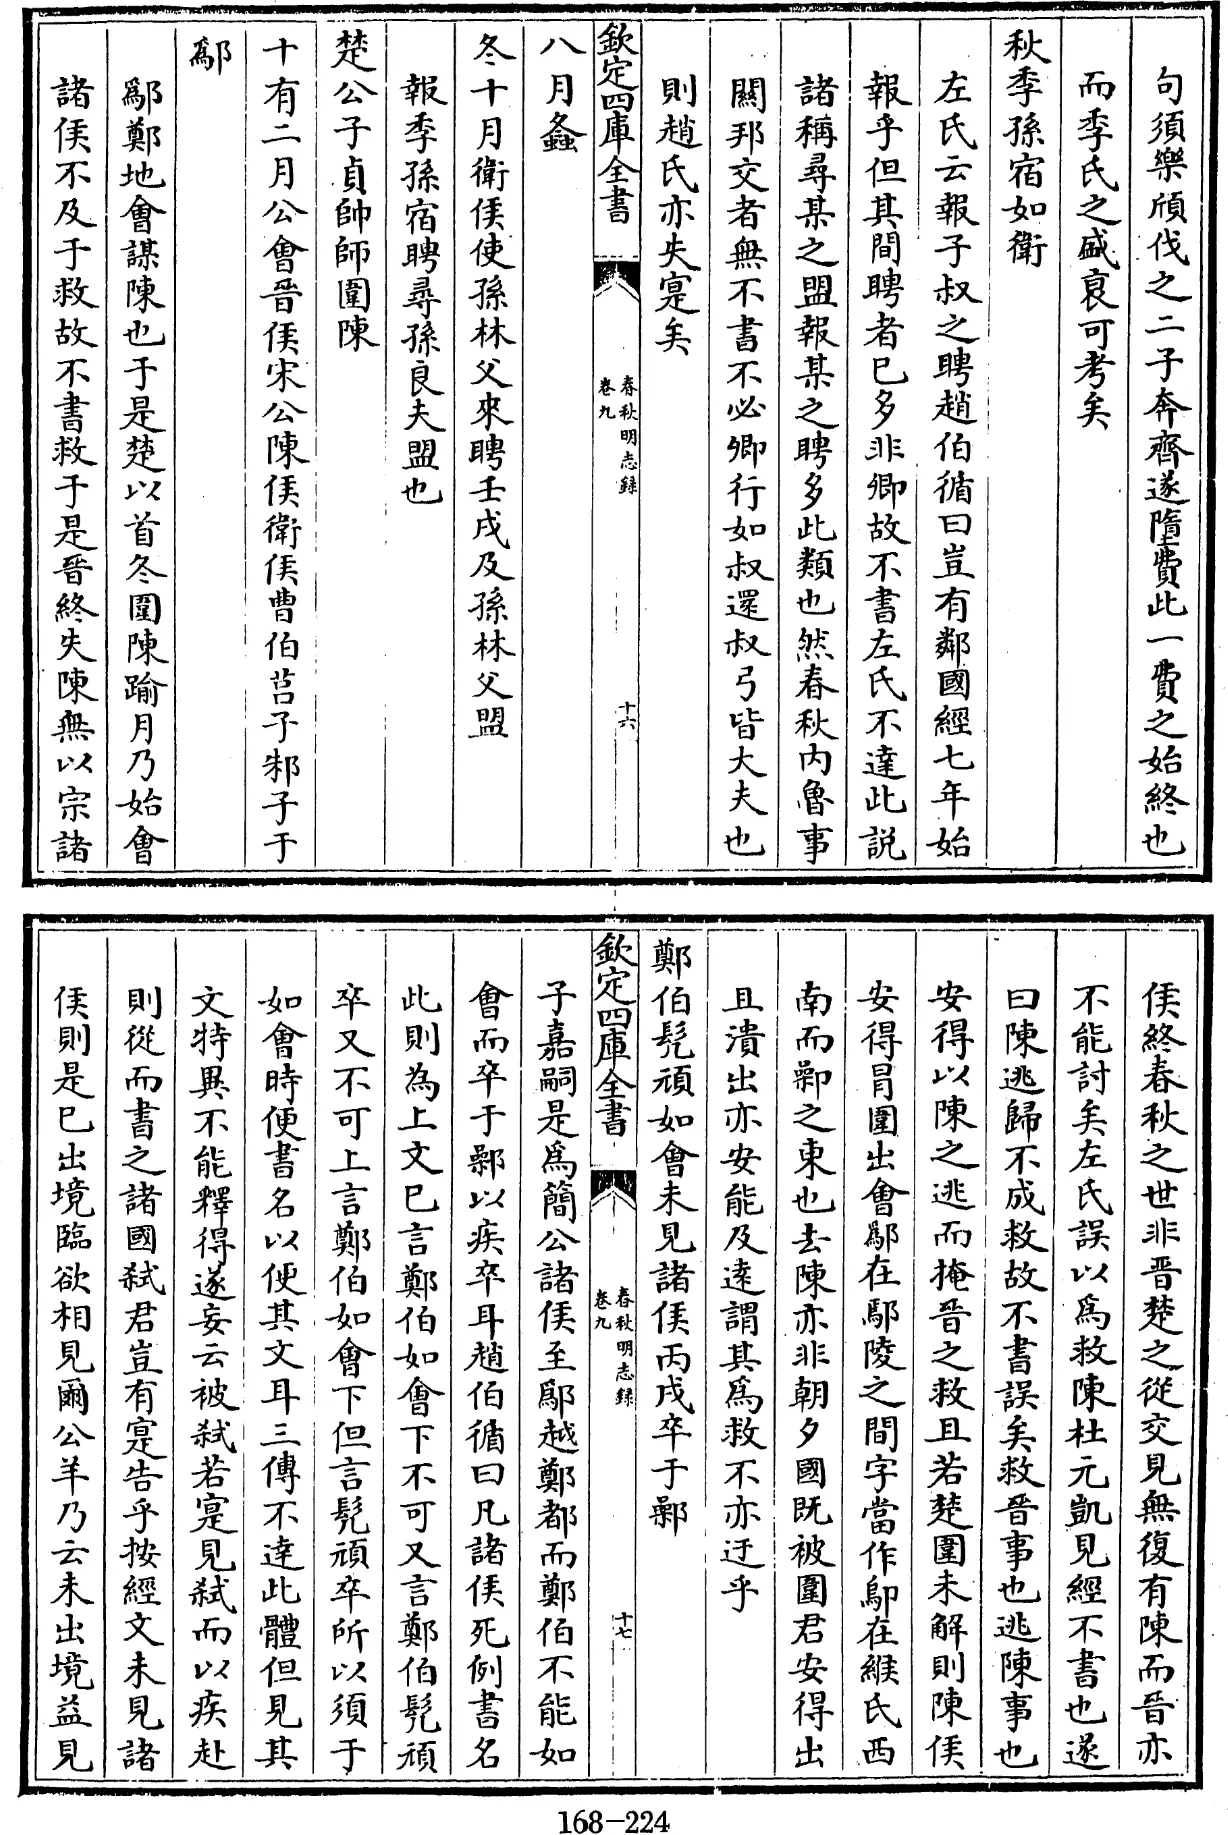 句須樂頎伐之二子奔齊遂隋費此一費之始終也
而季氏之盛衰可考矣
秋季孫宿如衛
左氏云報子叔之聘趙伯循曰豈有鄰國經七年始
報乎但其間聘者已多非卿故不書左氏不達此説
諸稱尋某之盟報某之聘多此類也然春秋内魯事
關邦交者無不書不必卿行如叔還叔弓皆大夫也
則趙氏亦失寔矣
欽定四庫全書
春秋明志録
卷九
十六
八月螽
冬十月衛侯使孫林父來聘壬戌及孫林父盟
報季孫宿聘尋孫良夫盟也
楚公子貞帥師圍陳
十有二月公會晉侯宋公陳侯衛侯曹伯莒子邾子于
鄬
鄬鄭地會謀陳也于是楚以首冬圍陳踰月乃始會
諸侯不及于救故不書救于是晉終失陳無以宗諸
侯終春秋之世非晉楚之從交見無復有陳而晉亦
不能討矣左氏誤以爲救陳杜元凱見經不書也遂
曰陳逃歸不成救故不書誤矣救晉事也逃陳事也
安得以陳之逃而掩晉之救且若楚圍未解則陳侯
安得冐圍出會鄬在鄢陵之間字當作鄔在緱氏西
南而鄵之東也去陳亦非朝夕國既被圍君安得出
且潰出亦安能及逺謂其爲救不亦迂乎
鄭伯髠頑如會未見諸侯丙戌卒于鄵
欽定四庫全書
春秋明志録
卷九
十七
子嘉嗣是爲簡公諸侯至鄢越鄭都而鄭伯不能如
會而卒于鄵以疾卒耳趙伯循曰凡諸侯死例書名
此則為上文已言鄭伯如會下不可又言鄭伯髠頑
卒又不可上言鄭伯如會下但言髠頑卒所以須于
如會時便書名以便其文耳三傳不達此體但見其
文特異不能釋得遂妄云被弑若寔見弑而以疾赴
則從而書之諸國弑君豈有寔告乎按經文未見諸
侯則是已出境臨欲相見爾公羊乃云未出境益見
168-224